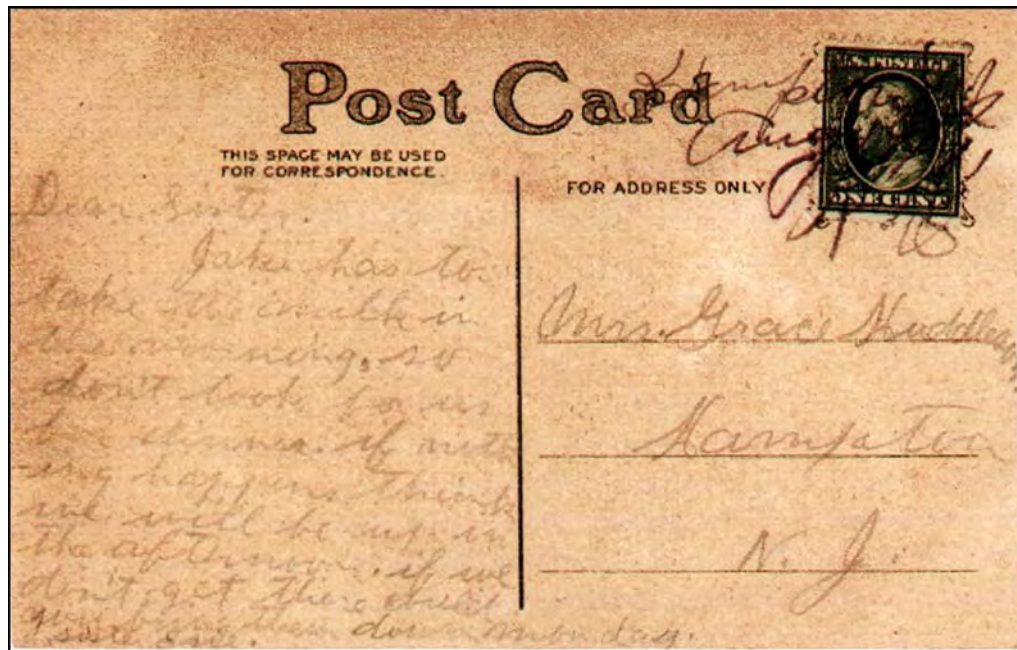 Post Card
THIS SPACE MAY BE USED
FOR CORRESPONDENCE.
FOR ADDRESS ONLY
U.S. POSTAGE
ONE CENT
Dear Sister,
Jake has to
take the milk in
the morning, so
don't look for us
for dinner. if noth
ing happens think
we will be up in
the afternoon. if we
don't get there
them down monday.
Mrs. Grace
Hampton
N. J.